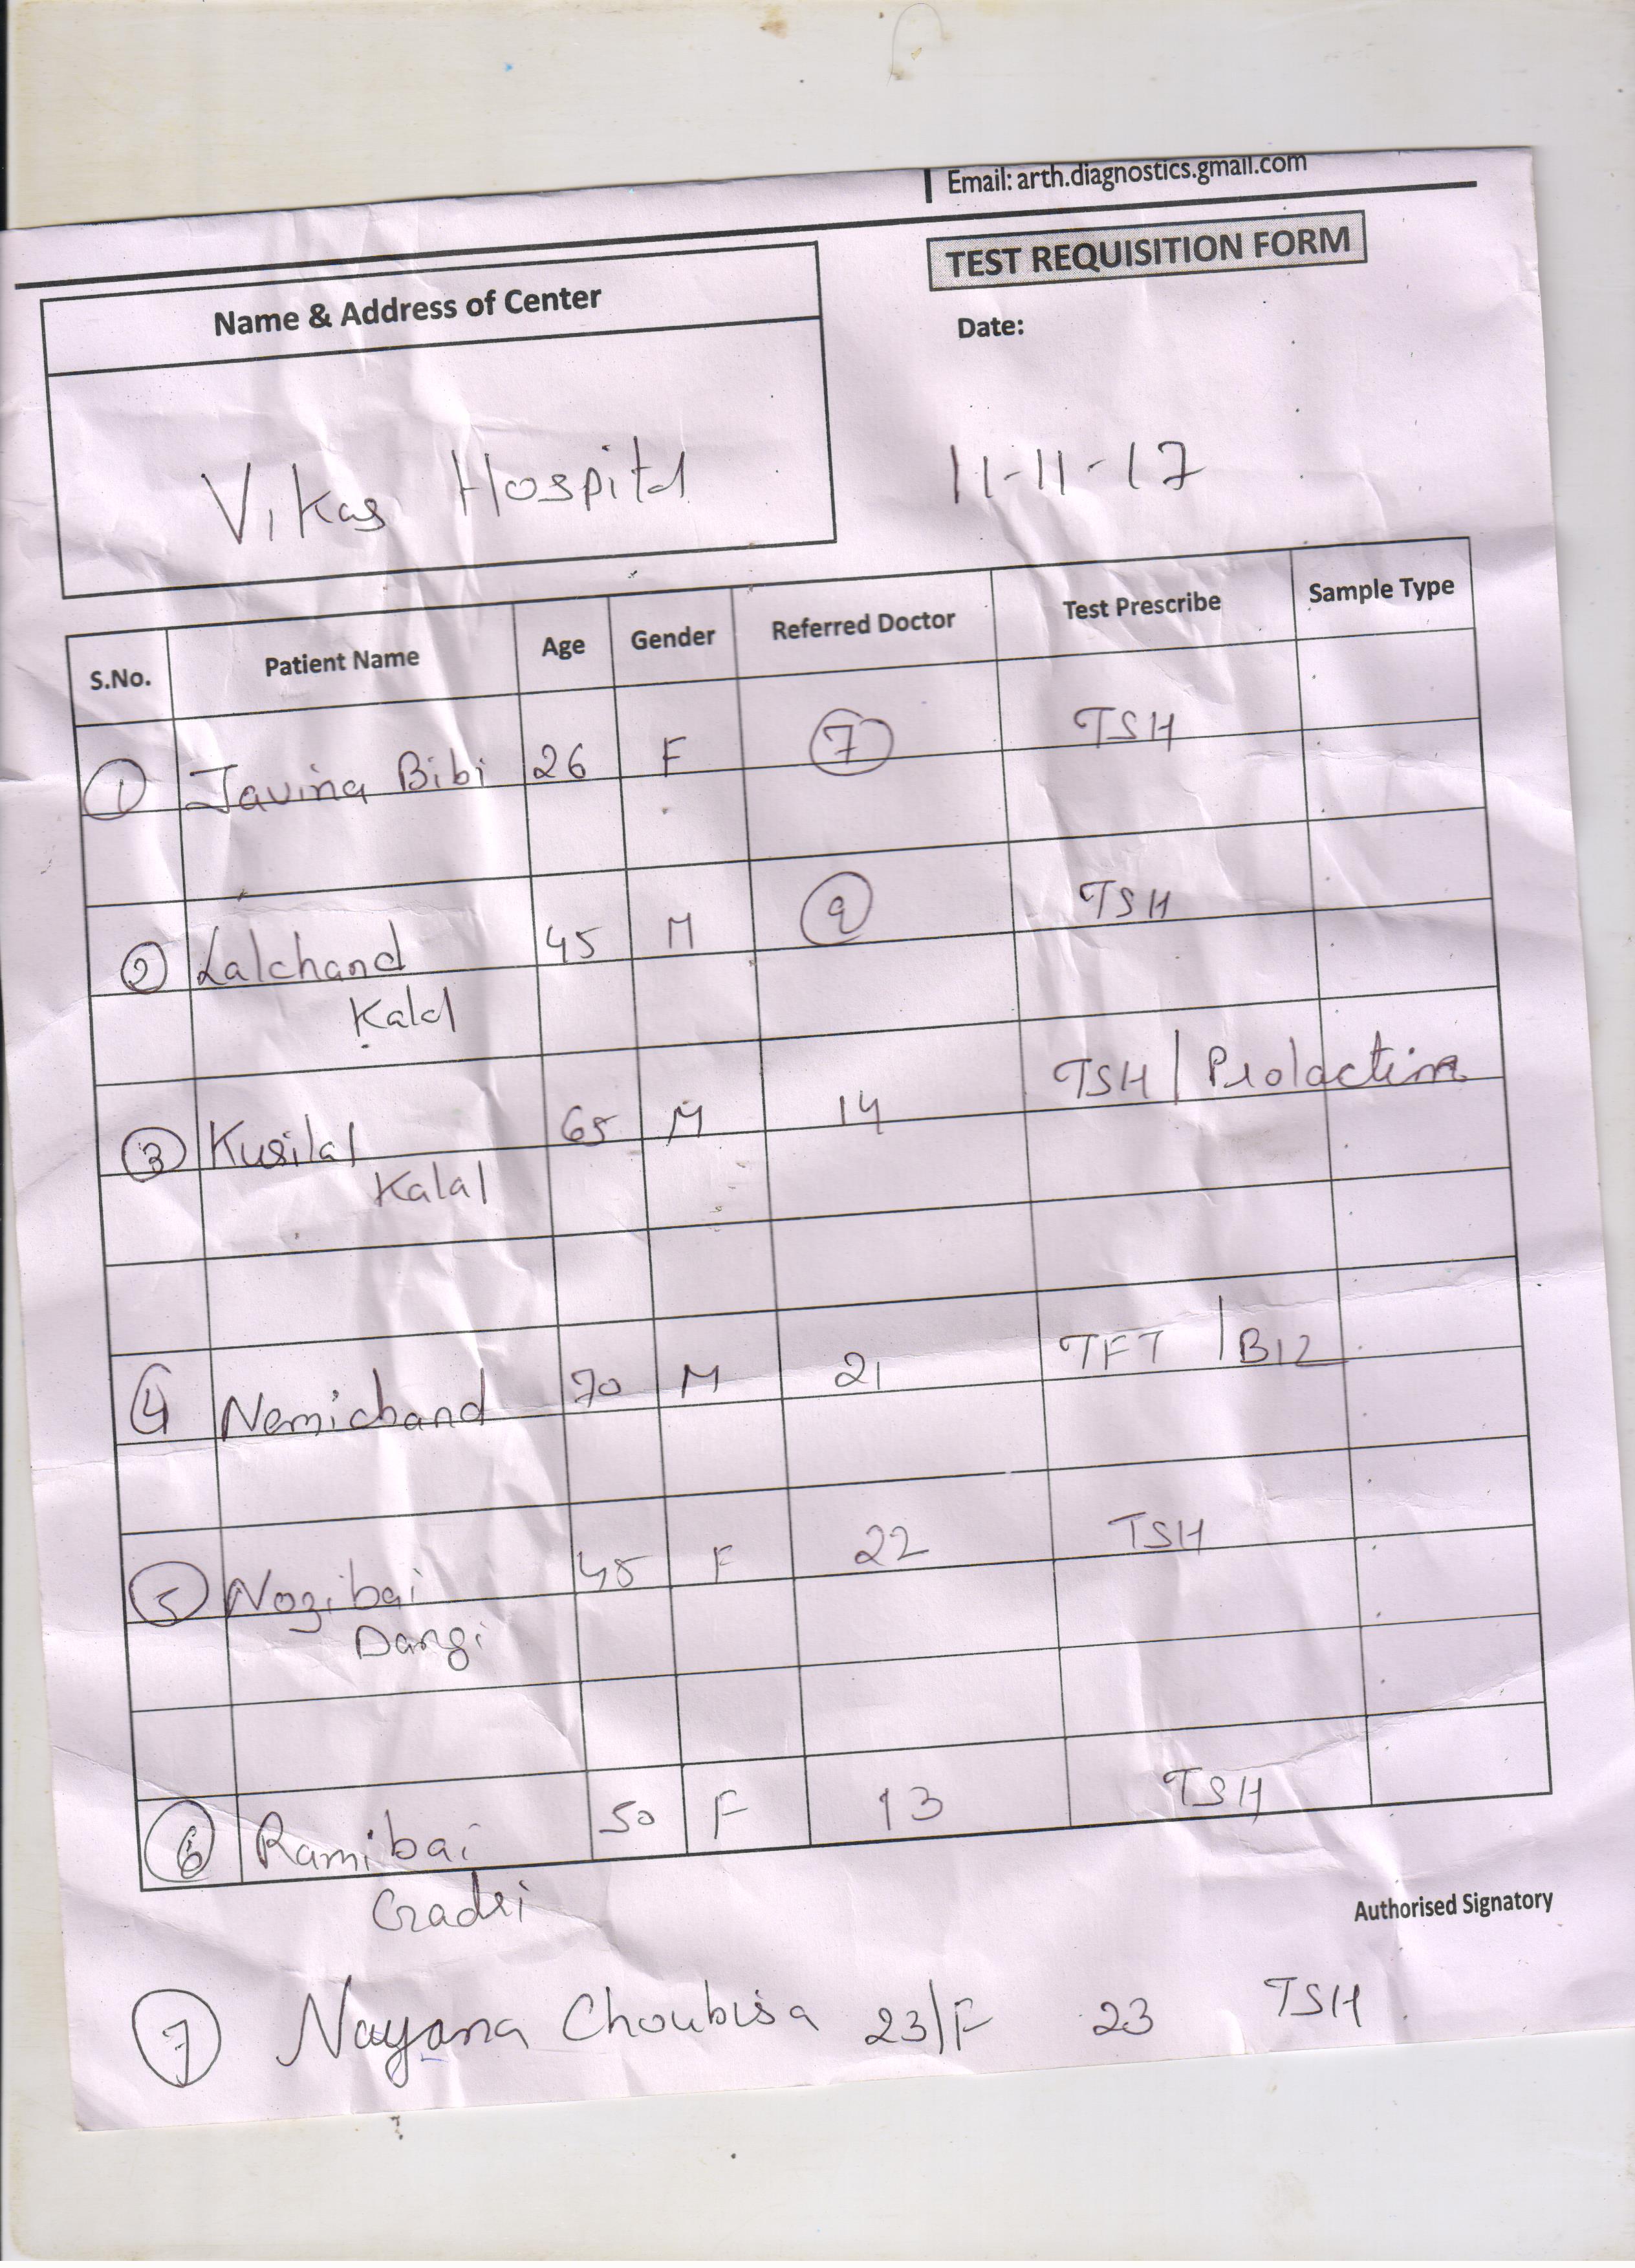 Email: arth.diagnostics.gmail.com
TEST REQUISITION FORM
Name & Address of Center
Date:
Vikas Hospital
11-11-17
S.No. Patient Name Age Gender Referred Doctor Test Prescribe Sample Type
1 Javina Bibi 26 F 7 TSH
2 Lalchand 45 M 9 TSH
Kalal
3 Kusilal 65 M 14 TSH / Prolactin
Kalal
4 Nemichand 70 M 21 TFT / B12
5 Nozibai 45 F 22 TSH
Dangi
6 Ramibai 50 F 13 TSH
Gadri
Authorised Signatory
7 Nayana Choubisa 23/F 23 TSH